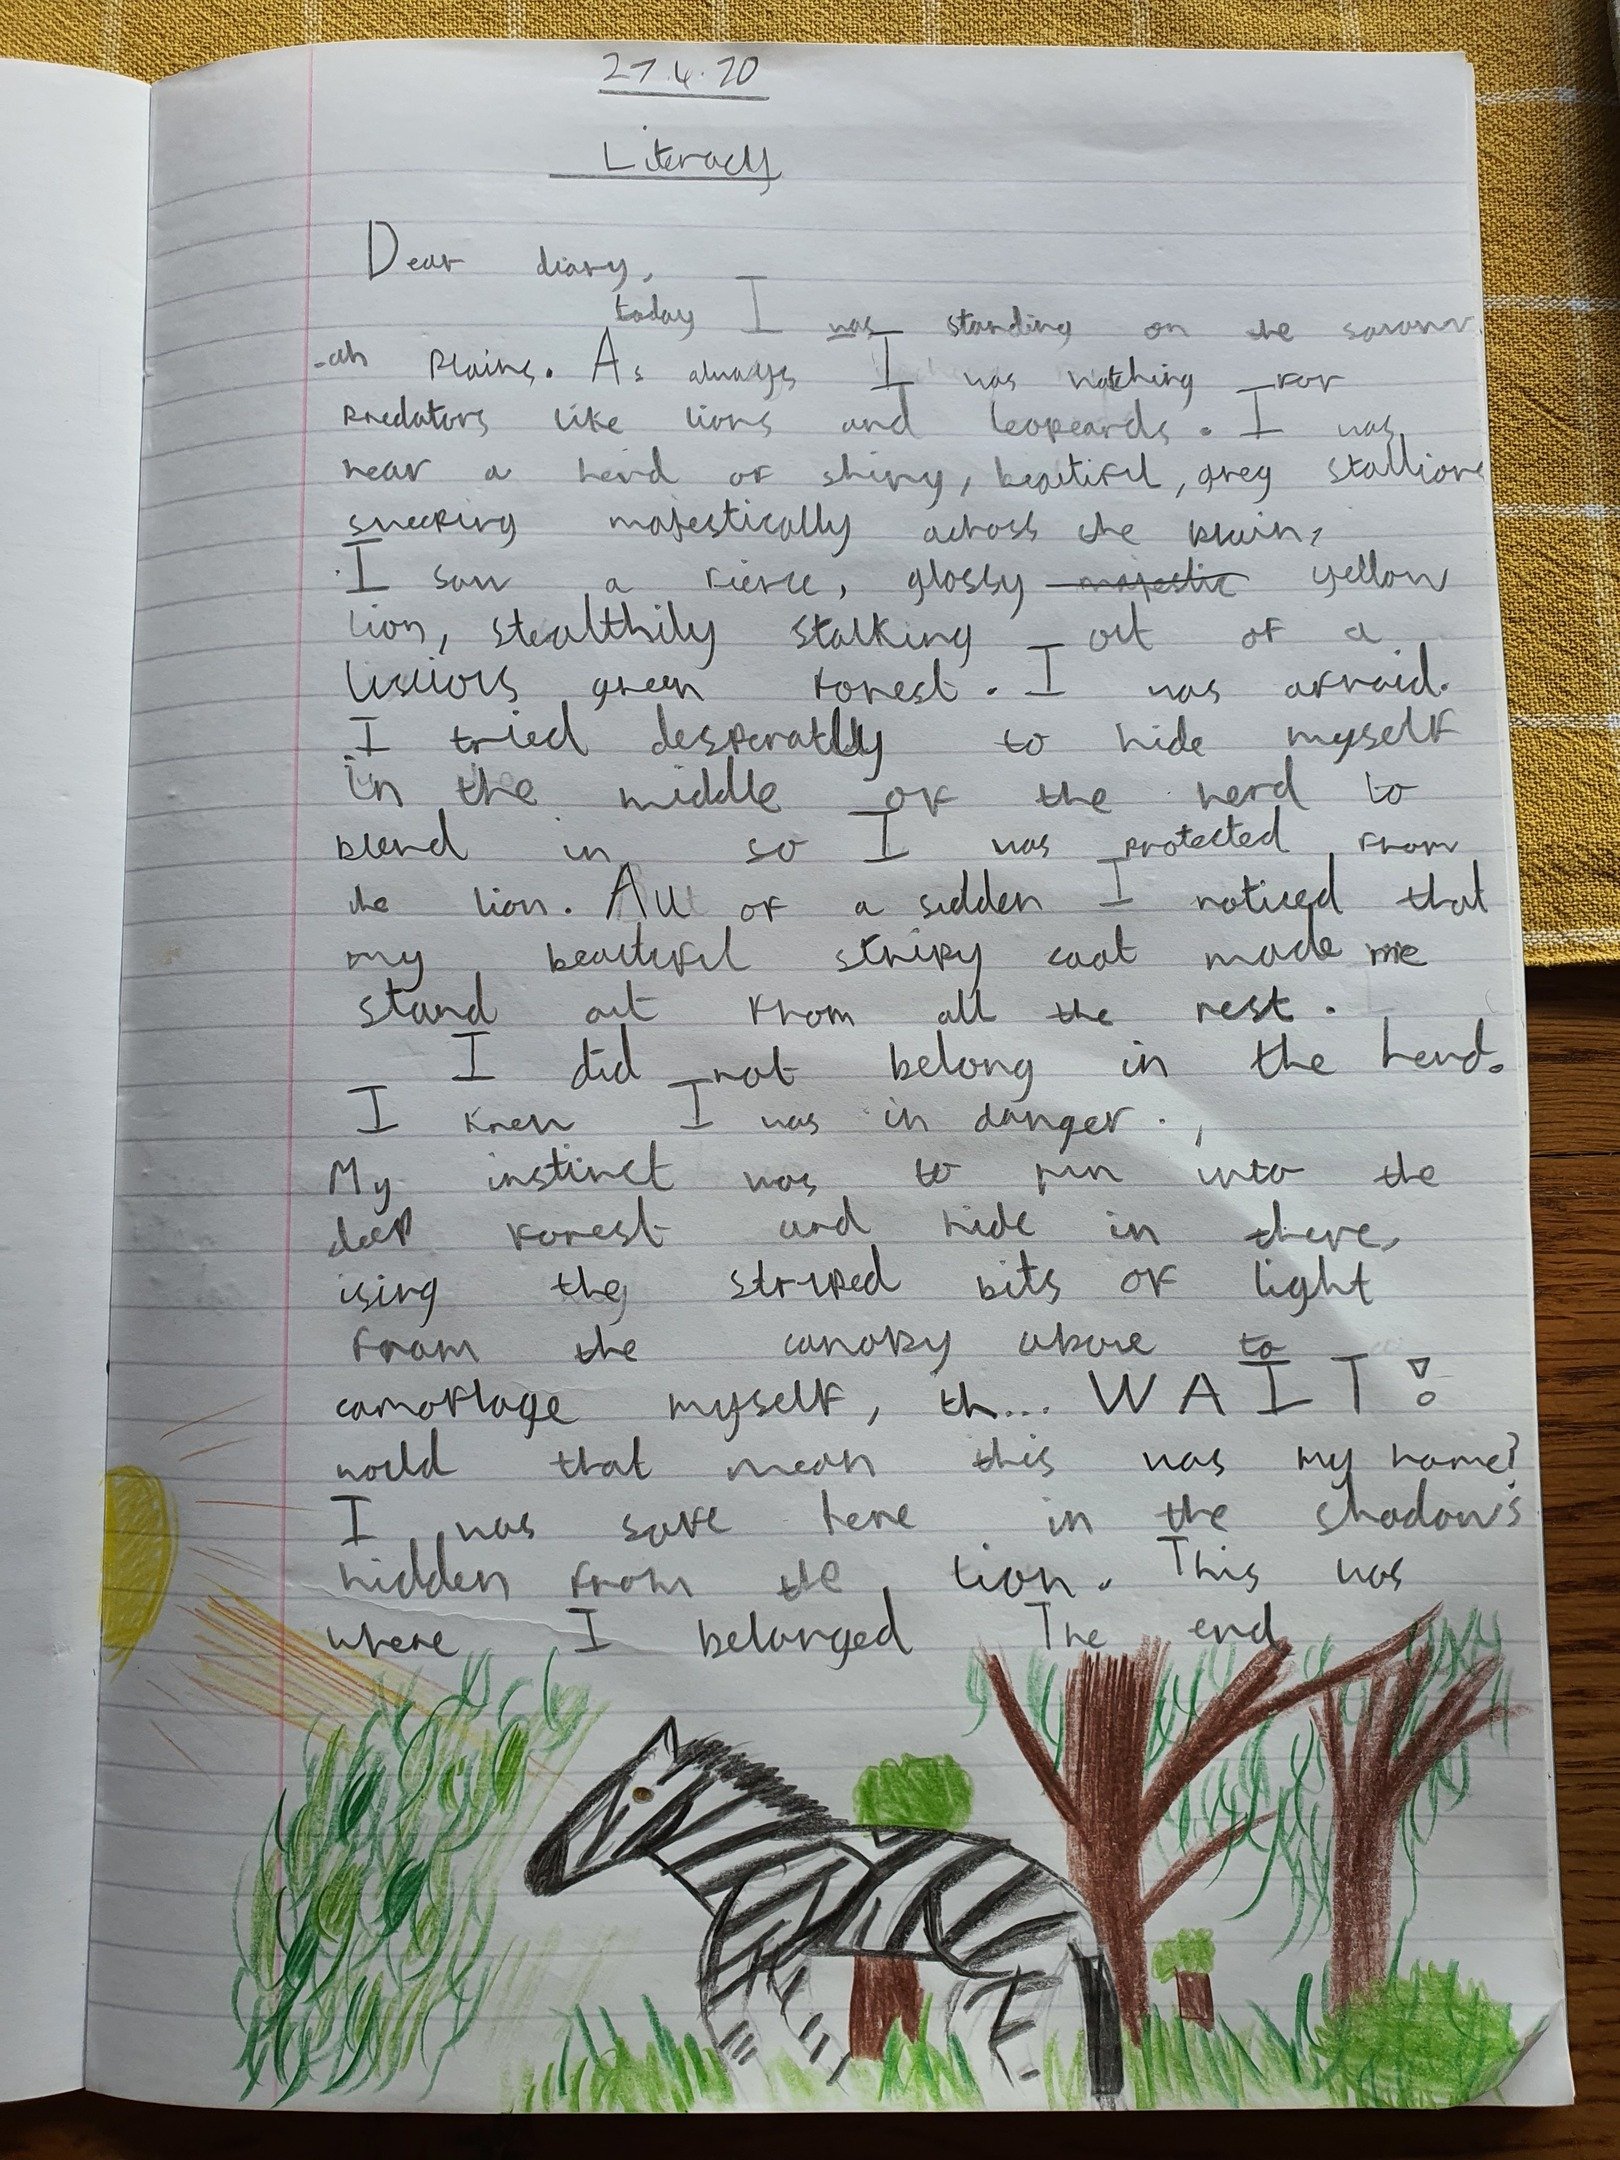 27.4.20
Literacy
Dear diary,
today I was standing on the savann
-ah plains. As always I was watching for
predators like lions and leopeards. I was
near a herd of shiny, beautiful, grey stallions
sneeking majestically across the plain,
I saw a fierce, glossy majestic yellow
lion, stealthily stalking out of a
luscious green forest. I was afraid.
I tried desperatlly to hide myself
in the middle of the herd to
blend in so I was protected from
the lion. All of a sudden I noticed that
my beautiful stripy coat made me
stand out from all the rest.
I did not belong in the herd.
I knew I was in danger.,
My instinct was to run into the
deep forest and hide in there,
using the striped bits of light
from the canopy above to
camoflage myself, th... WAIT!
would that mean this was my home?
I was safe here in the shadows
hidden from the lion. This was
where I belonged The end